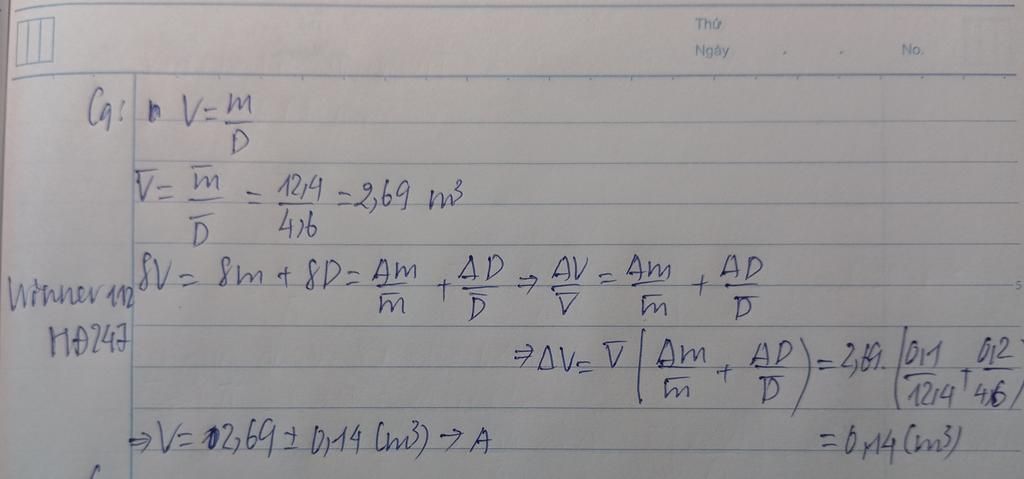 Thứ
Ngày . . No.
C9: V = m/D
V̅ = m̅/D̅ = 12,4/4,6 = 2,69 m³
δV = δm + δD = Δm/m̅ + ΔD/D̅ ⇒ ΔV/V̅ = Δm/m̅ + ΔD/D̅
Winner 112
HĐ247
⇒ ΔV = V̅ (Δm/m̅ + ΔD/D̅) = 2,69. (0,1/12,4 + 0,2/4,6)
= 0,14 (m³)
⇒ V = 2,69 ± 0,14 (m³) → A